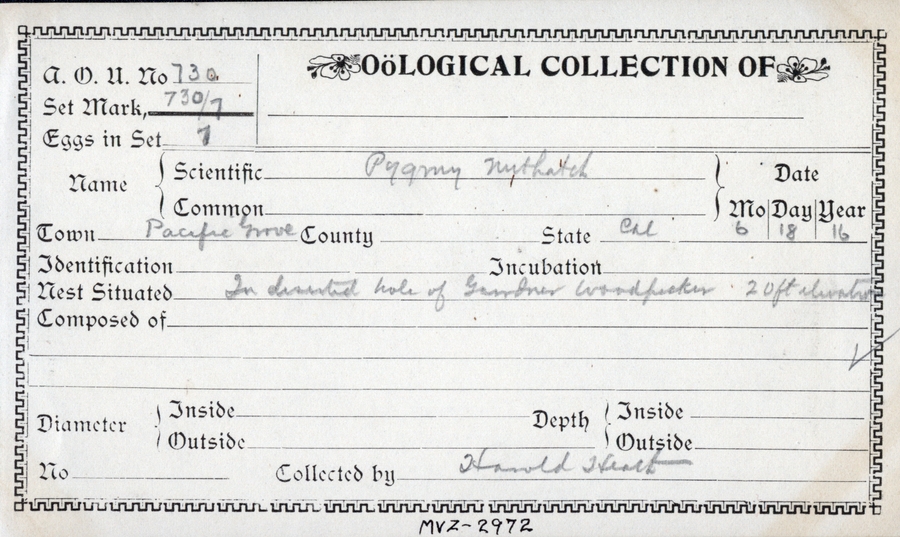 OöLOGICAL COLLECTION OF
A. O. U. No 730
Set Mark, 730/7
Eggs in Set 7
Name
Scientific Pygmy Nuthatch
Common
Date
Mo Day Year
6 18 16
Town Pacific Grove County State Cal
Identification Incubation
Nest Situated In deserted hole of Gardner Woodpecker 20ft elevation
Composed of
Diameter Inside Depth Inside
Outside Outside
No Collected by Harold Heath
MVZ-2972